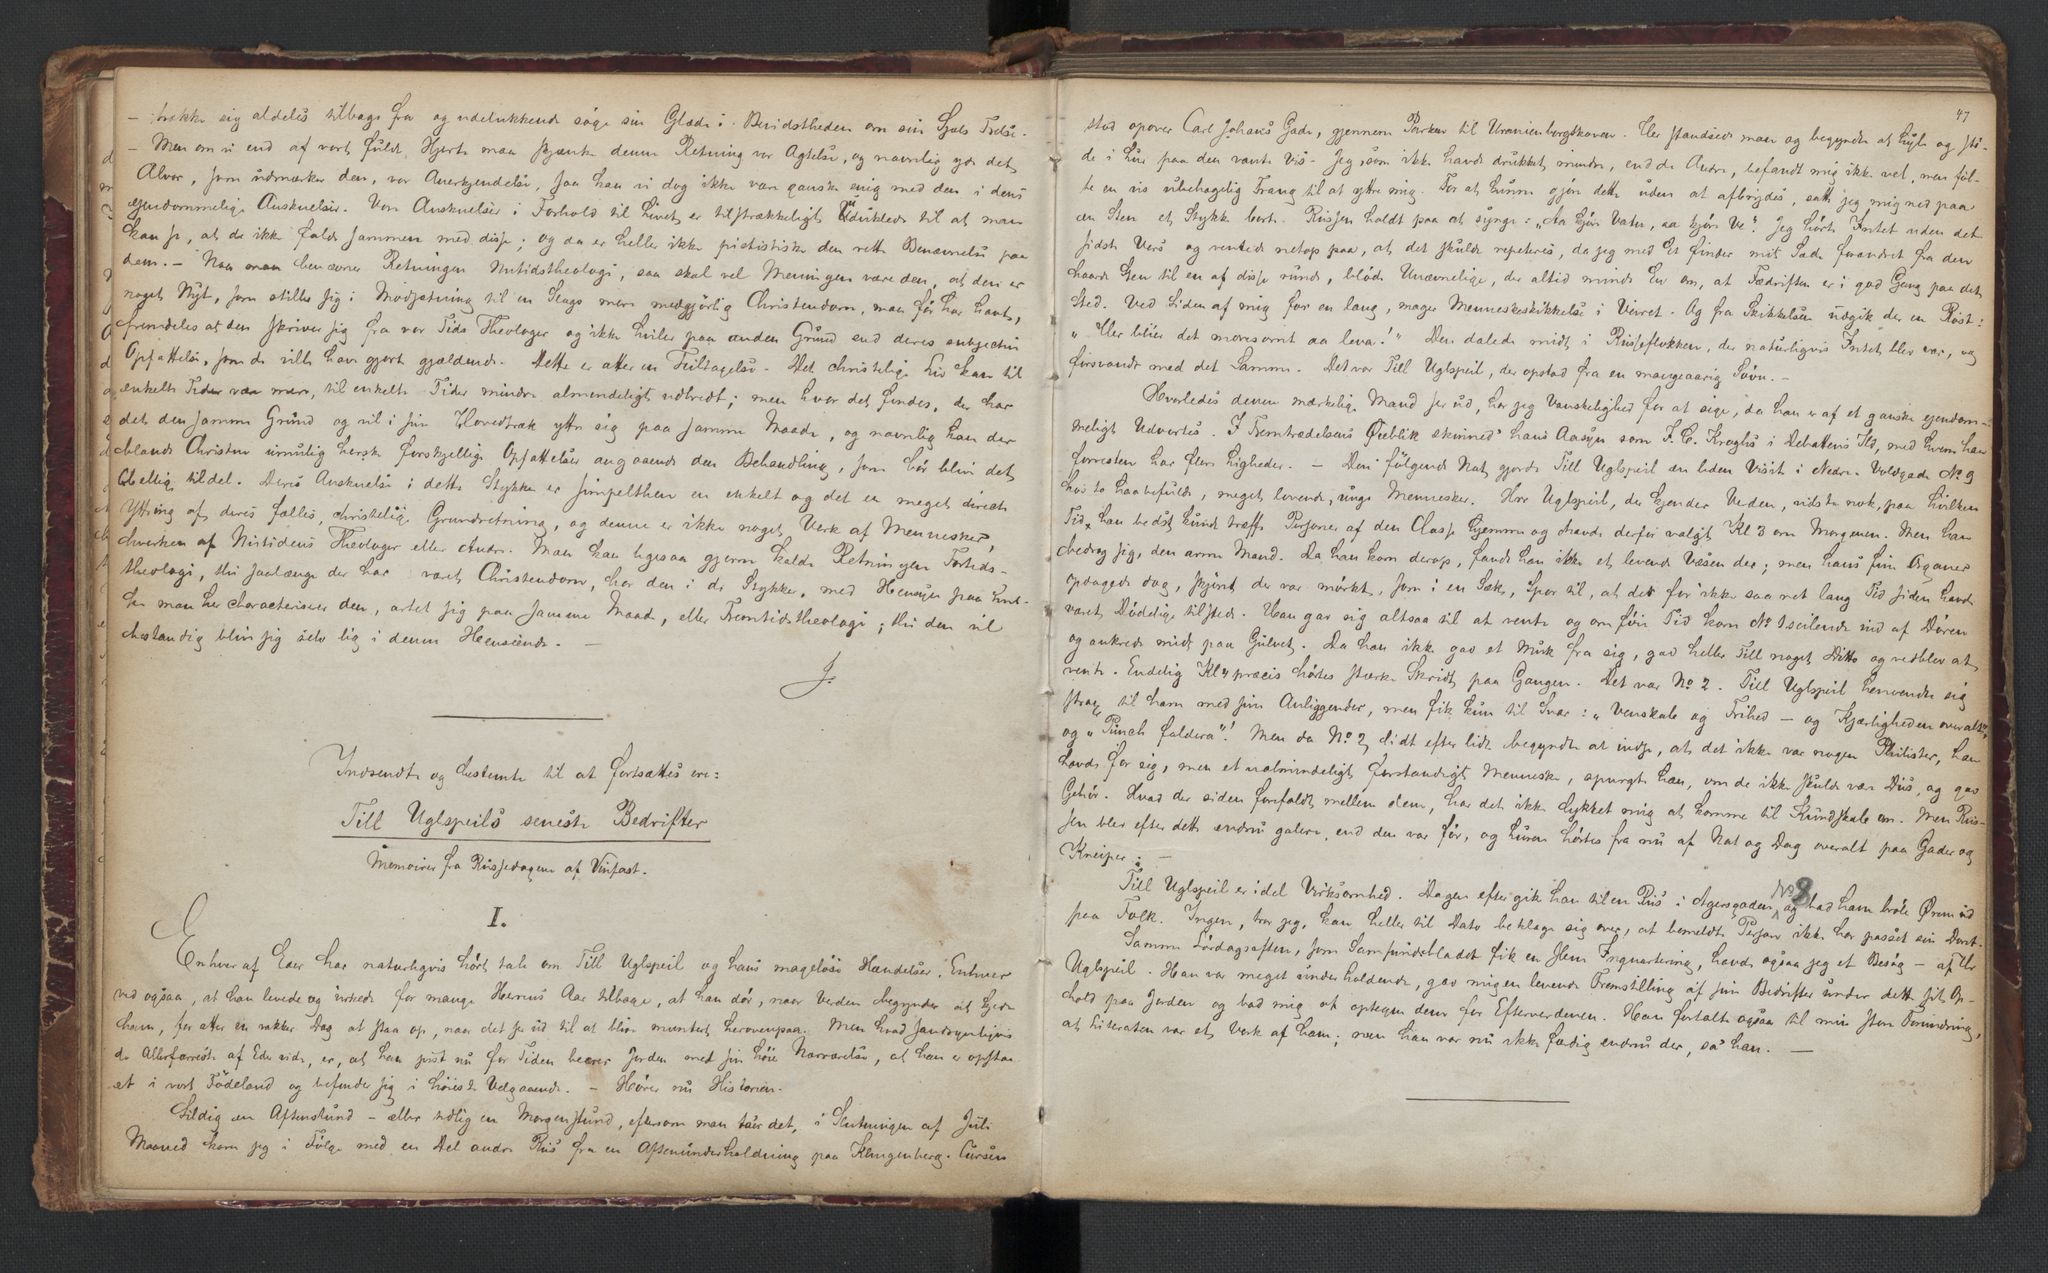 – trække sig aldeles tilbage fra og udelukkende søge sin Glæde i Bevidstheden om sin Sjæls Frelse.
– Men om vi end af vort fulde Hjerte maa skjænke denne Retning vor Agtelse, og navnlig yde det
Alvor, som udmærker den, vor Anerkjendelse, saa kan vi dog ikke være ganske enig med den i dens
ejendommelige Anskuelser. Vore Anskuelser i Forhold til Livet er tilstrækkeligt udviklede til at man
kan se, at de ikke falde sammen med disse; og da er heller ikke pietistiske den rette Benævnelse paa
dem. – Naar man benævner Retningen Nutidstheologi, saa skal vel Meningen være den, at den er
noget Nyt, som stiller sig i Modsætning til en Slags mere medgjørlig Christendom, man før har havt,
fremdeles at den skriver sig fra vor Tids Theologer og ikke hviler paa anden Grund end deres subjective
Opfattelse, som de ville have gjort gjældende. Dette er atter en Feiltagelse. Det christelige Liv kan til
enkelte Tider være mere, til enkelte Tider mindre almindeligt udbredt; men hvor det findes, der har
det den samme Grund og vil i sin Hovedtræk yttre sig paa samme Maade, og navnlig kan der
blandt Christne umulig herske forskjellige Opfattelser angaaende den Behandling, som bør blive det
Hellige tildel. Deres Anskuelse i dette Stykke er simpelthen en enkelt og det en meget directe
Yttring af deres fælles, christelige Grundretning, og denne er ikke noget Værk af Mennesker,
hverken af Nutidens Theologer eller Andre. Man kan ligesaa gjerne kalde Retningen Fortids-
theologi, thi saalænge der har været Christendom, har den i de Stykker, med Hensyn paa hvil-
ke man her characteriserer den, artet sig paa samme Maade, eller Fremtidstheologi; thi den vil
bestandig blive sig selv lig i denne Henseende. –
J.
Indsendte og bestemte til at fortsættes ere:
Till Uglspeils seneste Bedrifter
Memoirer fra Russedagene af Vinfast.
I.
Enhver af Eder har naturligvis hørt tale om Till Uglspeil og hans mageløse Hændelser. Enhver
ved ogsaa, at han levede og virkede for mange Herrens Aar tilbage, at han dør, naar Verden begynder at kjede
ham, for atter en vakker Dag at staa op, naar det ser ud til at blive muntert herovenpaa. Men hvad sandsynligvis
de Allerfærreste af Eder vide, er, at han just nu for Tiden beærer Jorden med sin høie Nærværelse, at han er opstaa-
et i vort Fødeland og befinder sig i høieste Velgaaende. – Hører nu Historien.
Sildig en Aftenstund – eller tidlig en Morgenstund, eftersom man ta'er det, i Slutningen af Juli
Maaned kom jeg i Følge med en Del andre Rus fra en Aftenunderholdning paa Klingenberg. Cursen
47
stod opover Carl Johans Gade, gjennem Parken til Uranienborgskoven. Her standsede man og begyndte at hyle og stø-
de i Luur paa den vante Vis. Jeg, som ikke havde drukket mindre, end de Andre, befandt mig ikke vel, men føl-
te en vis ubehagelig Trang til at yttre mig. For at kunne gjøre dette uden at afbrydes, satte jeg mig ned paa
en Sten et Stykke borte. Russen holdt paa at synge: „Aa kjør Vatn, aa kjør Ve". Jeg hørte Intet uden det
sidste Vers og ventede netop paa, at det skulde repeteres, da jeg med Et finder mit Sæde forandret fra den
haarde Sten til en af disse runde, bløde Unævnelige, der altid minde En om, at Fædriften er i god Gang paa det
Sted. Ved Siden af mig for en lang, mager Menneskeskikkelse i Veiret. Og fra Skikkelsen udgik der en Røst:
„Her bliver det moresomt aa leva!" Den dalede midt i Russeflokken, der naturligvis Intet blev var, og
forsvandt med det Samme. Det var Till Uglspeil, der opstod fra en mangeaarig Søvn. –
Hvorledes denne mærkelige Mand ser ud, har jeg Vanskelighed for at sige, da han er af et ganske ejendom-
meligt Udvortes. I Fremtrædelsens Øieblik skinnede hans Aasyn som J. C. Kroghs i Debattens Ild, med hvem han
forresten har flere Ligheder. – Den følgende Nat gjorde Till Uglspeil en liden Visit i Nedre Voldgade No 9
hos to haabefulde, meget lovende, unge Mennesker. Herr Uglspeil, der kjender Verden, vidste nok, paa hvilken
Tid han bedst kunde træffe Personer af den Classe hjemme og havde derfor valgt Kl 3 om Morgenen. Men han
bedrog sig, den arme Mand. Da han kom derop, fandt han ikke et levende Væsen der; men hans fine Organer
opdagede dog, skjønt der var mørkt, som i en Sæk, Spor til, at der for ikke saa ret lang Tid siden havde
været Dødelige tilstede. Han gav sig altsaa til at vente og om føie Tid kom No 1 seilende ind af Døren
og ankrede midt paa Gulvet. Da han ikke gav et Muk fra sig, gav heller Till noget Ditto og vedblev at
vente. Endelig Kl 4 præcis hørtes stærke Skridt paa Gangen. Det var No 2. Till Uglspeil henvendte sig
strax til ham med sine Anliggender, men fik kun til Svar: „Venskab og Frihed – og Kjærligheden overalt",
og „Punch faldera"! Men da No 2 lidt efter lidt begyndte at indse, at det ikke var nogen Philister, han
havde for sig, men et ualmindeligt forstandigt Menneske, spurgte han, om de ikke skulde være Dus, og gav
Gehør. Hvad der siden forefaldt mellem dem, har det ikke lykket mig at komme til Kundskab om. Men Rus-
sen blev efter dette endnu galere, end den var før, og Luren hørtes fra nu af Nat og Dag overalt paa Gader og
Kneiper. –
Till Uglspeil er idel Virksomhed. Dagen efter gik han til en Rus i Agersgaden No 8 og bad ham bide Ørene ud
paa Folk. Ingen, tror jeg, kan heller til Dato beklage sig over, at bemeldte Person ikke har passet sin Dont.
Samme Lørdagsaften, som Samfundsbladet fik en slem Inqvartering, havde ogsaa jeg et Besøg – af Hr
Uglspeil. Han var meget underholdende, gav mig en levende Fremstilling af sine Bedrifter under dette sit Op-
hold paa Jorden og bad mig at optegne dem for Efterverdenen. Han fortalte ogsaa til min store Forundring,
at Literaten var et Værk af ham; men han var nu ikke færdig endnu der, sa' han. –